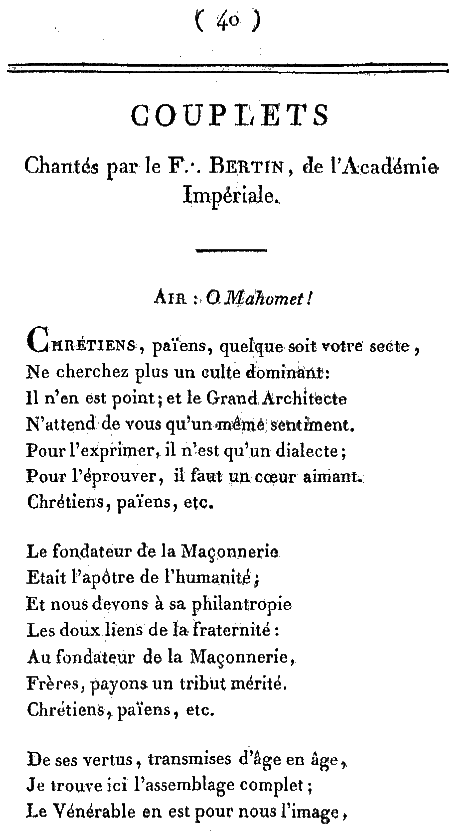 ( 40 )
COUPLETS
Chantés par le F.·. BERTIN, de l'Académie
Impériale.
AIR : O Mahomet !
CHRÉTIENS, païens, quelque soit votre secte,
Ne cherchez plus un culte dominant:
Il n'en est point; et le Grand Architecte
N'attend de vous qu'un même sentiment.
Pour l'exprimer, il n'est qu'un dialecte;
Pour l'éprouver, il faut un cœur aimant.
Chrétiens, païens, etc.
Le fondateur de la Maçonnerie
Etait l'apôtre de l'humanité;
Et nous devons à sa philantropie
Les doux liens de la fraternité :
Au fondateur de la Maçonnerie,
Frères, payons un tribut mérité.
Chrétiens, païens, etc.
De ses vertus, transmises d'âge en âge,
Je trouve ici l'assemblage complet;
Le Vénérable en est pour nous l'image,